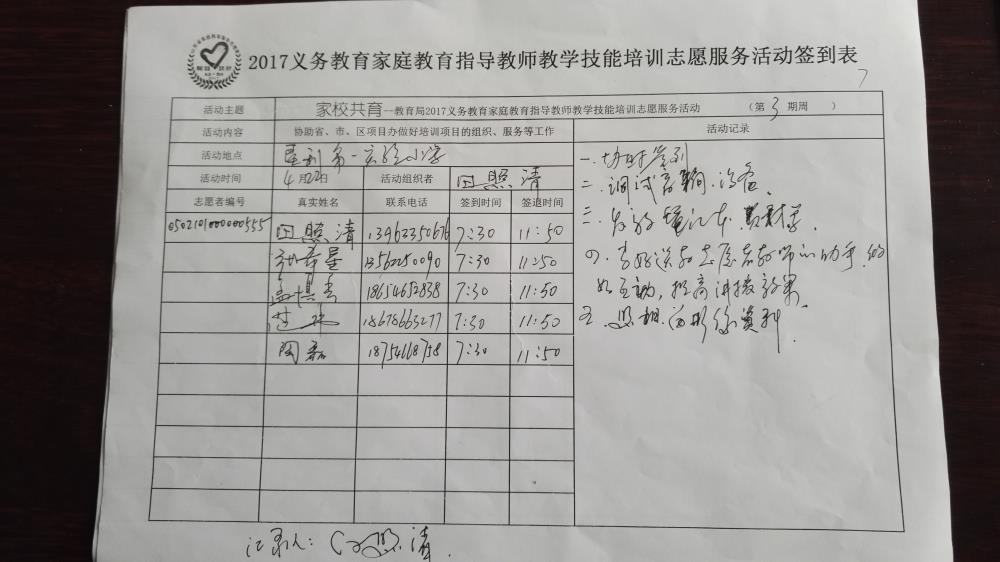 2017义务教育家庭教育指导教师教学技能培训志愿服务活动签到表
7
活动主题 家校共育—教育局2017义务教育家庭教育指导教师教学技能培训志愿服务活动 （第 3 期周 ）
活动内容 协助省、市、区项目办做好培训项目的组织、服务等工作 活动记录
活动地点 第一实验小学
活动时间 4月22日 活动组织者 田照清
志愿者编号 真实姓名 联系电话 签到时间 签退时间
0502101000000555 田照清 13962350676 7:30 11:50
希星 13562250090 7:30 11:50
孟 18654652838 7:30 11:50
18678663277 7:30 11:50
陶磊 18754668758 7:30 11:50
一.签到
二.调试音响.设备.
三.发放笔记本
四.当好志愿者教师的助手,
互动,提高讲授效果
五.照相.资料.
记录人: 田照清.